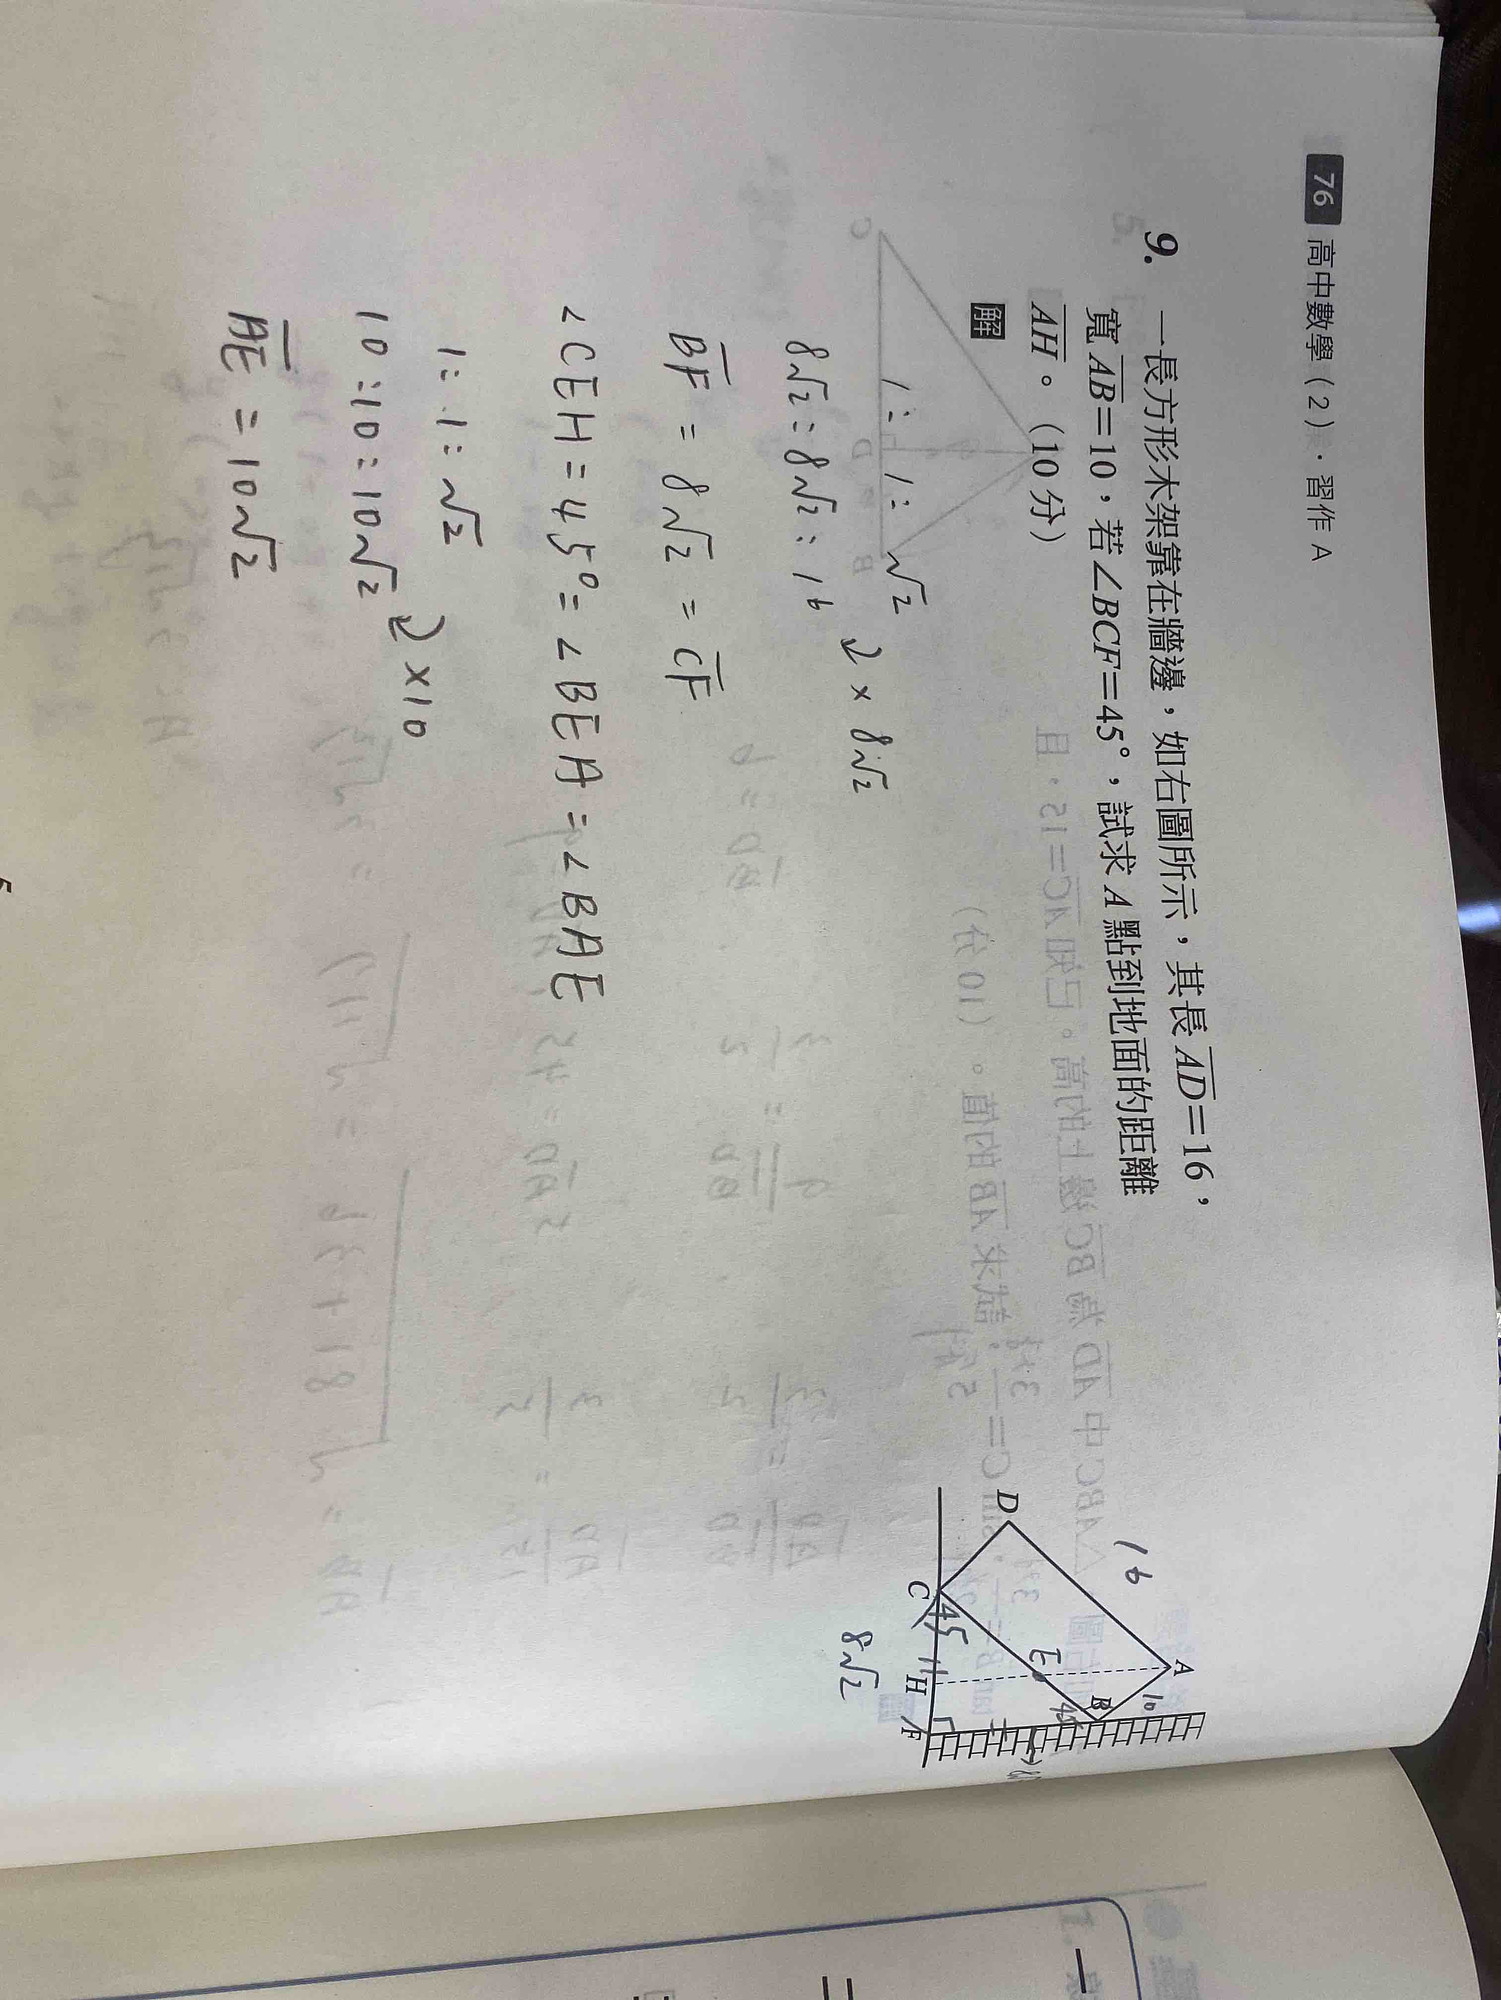 76 高中數學(2)·習作 A
9. 一長方形木架靠在牆邊，如右圖所示，其長 AD=16，
寬 AB=10，若∠BCF=45°，試求 A 點到地面的距離
AH。(10 分)
解
1 : 1 : √2
8√2 : 8√2 : 16 ↙ × 8√2
BF = 8√2 = CF
∠CEH = 45° = ∠BEA = ∠BAE
1 : 1 : √2
10 : 10 : 10√2 ↙ ×10
AE = 10√2
16
D
A
10
B
E
45
C
45
H
F
8√2